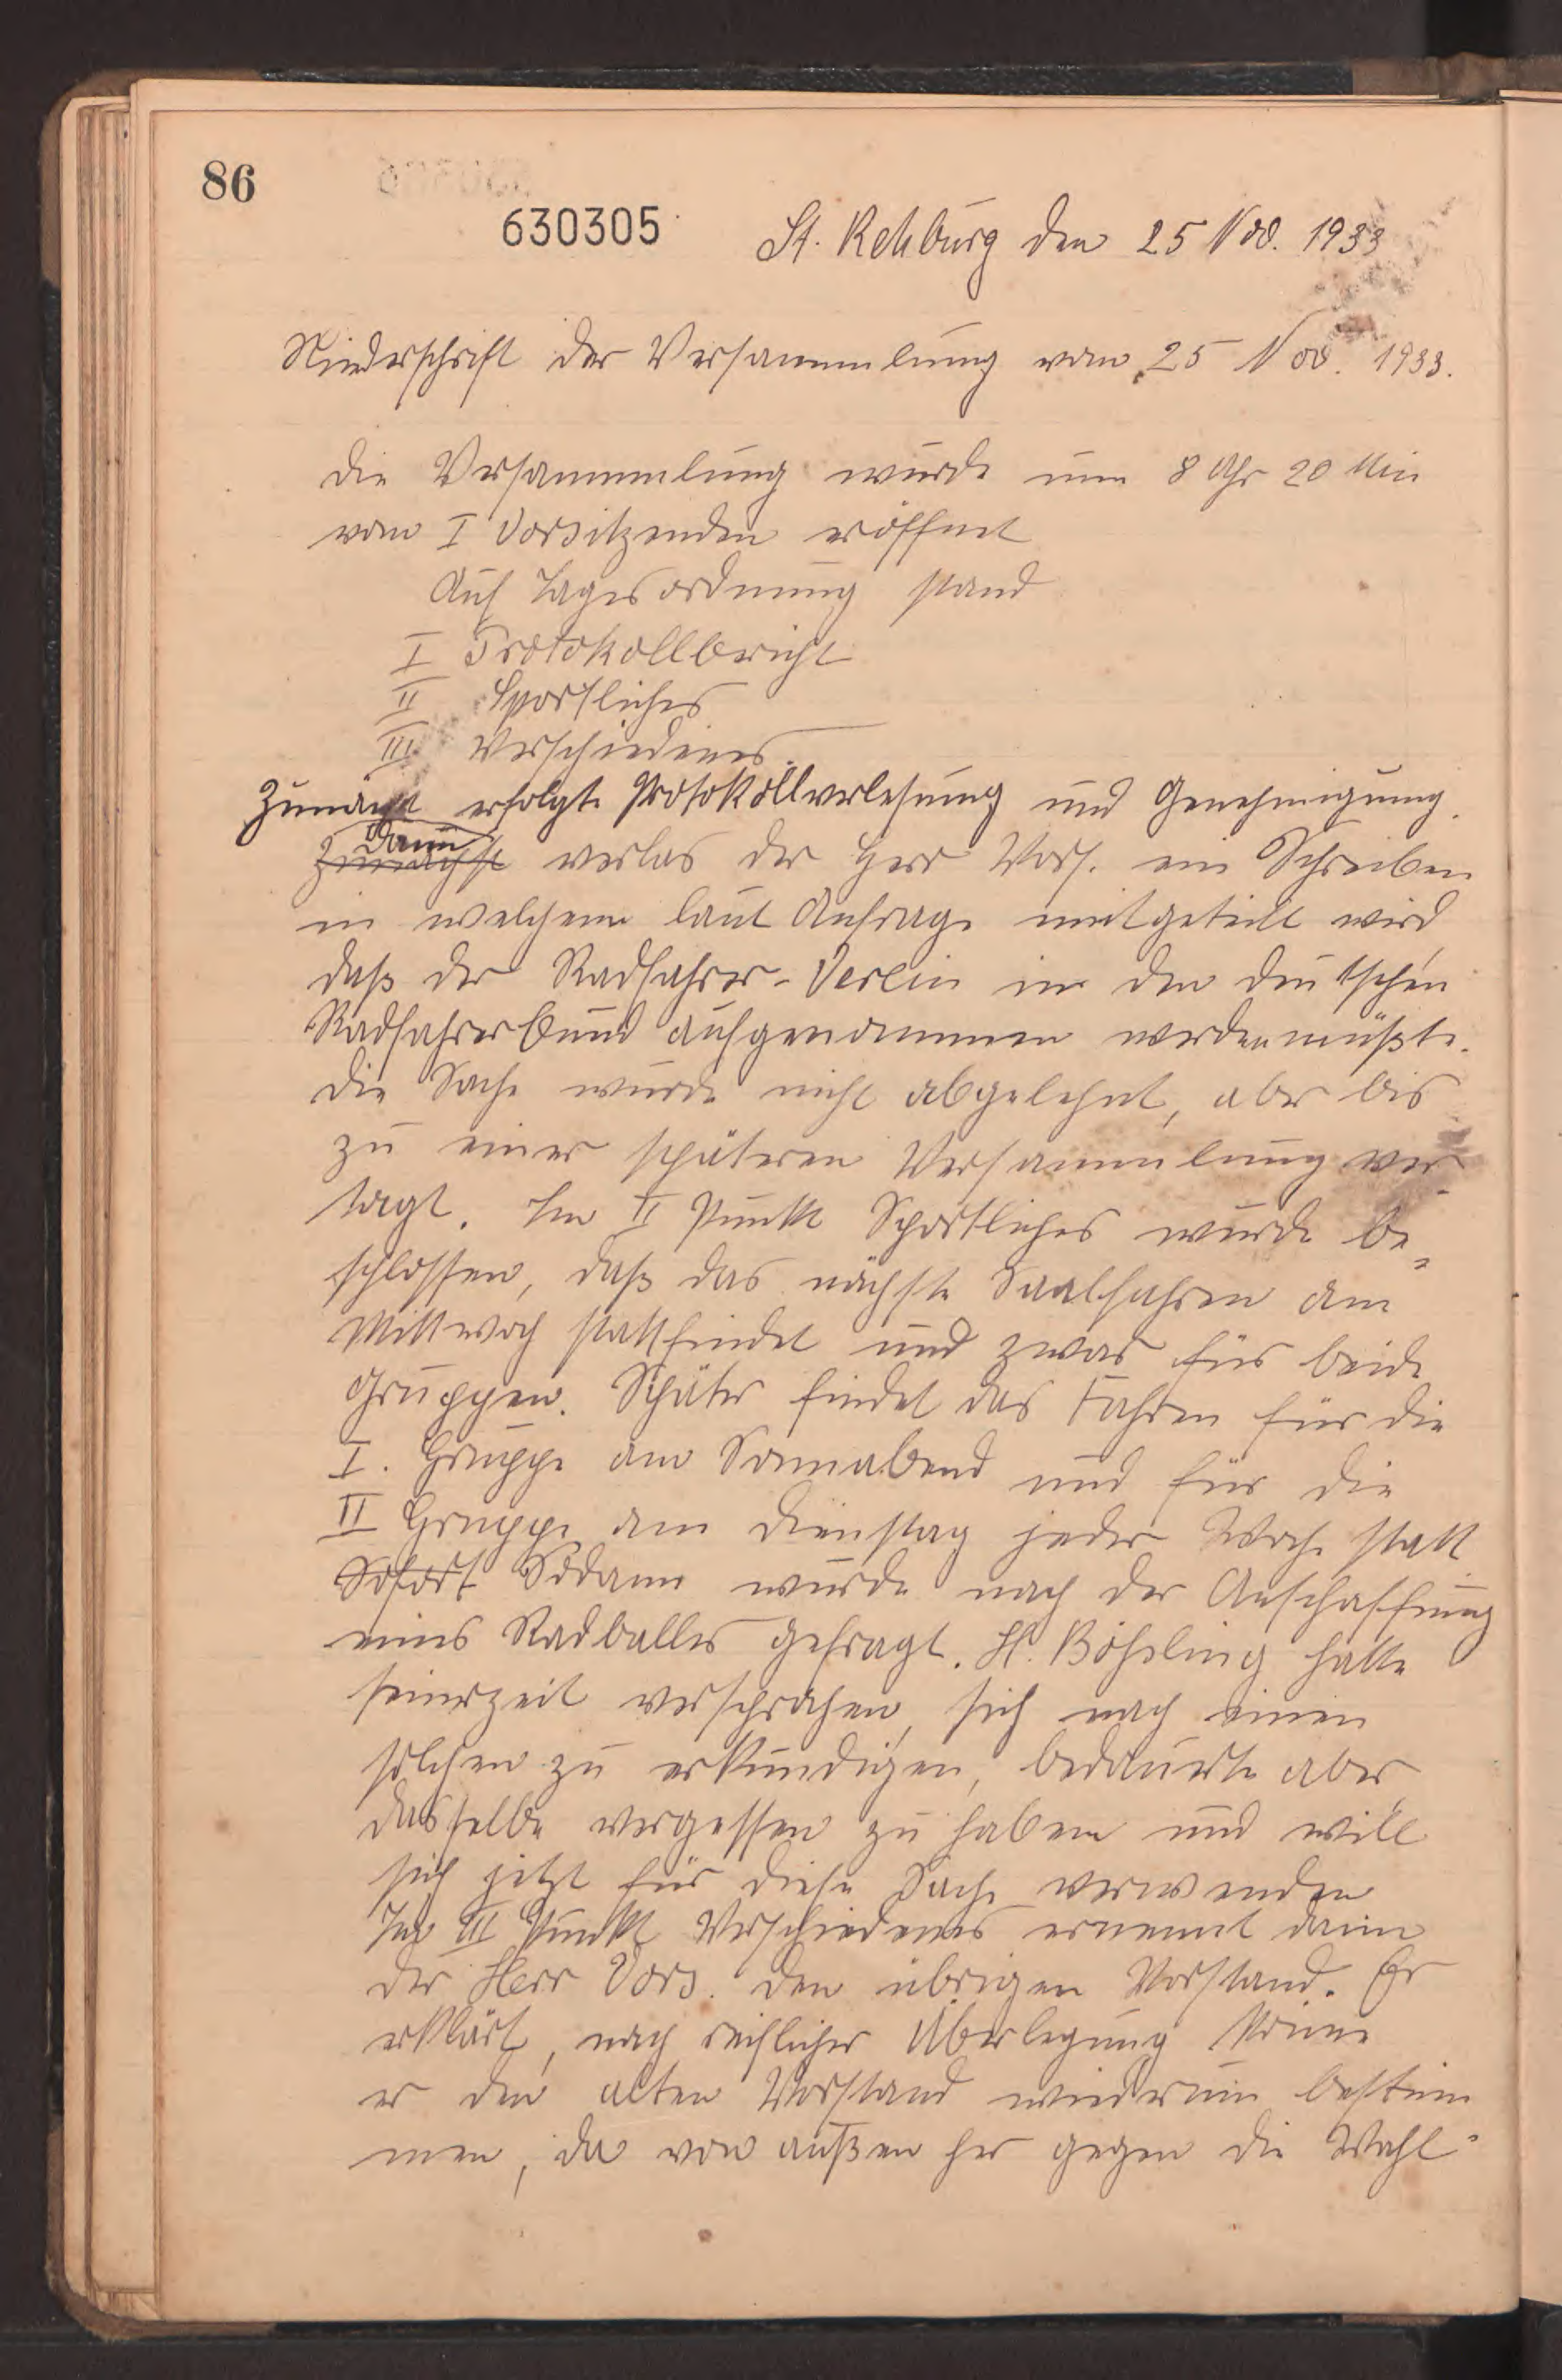 86
630305
St. Rehburg den 25 Nov. 1933
Niederschrift der Versammlung vom 25 Nov. 1933.
Die Versammlung wurde um 8 Uhr 20 Min
vom I Vorsitzenden eröffnet
Auf Tagesordnung stand
I Protokollbericht
II Sportliches
III Verschiedenes.
Zunächst erfolgte Protokollverlesung und Genehmigung.
dann
Zunächst verlas der Herr Vors. ein Schreiben
in welchem laut Anfrage mitgeteilt wird
daß der Radfahrer-Verein in den deutschen
Radfahrerbund aufgenommen werden müßte.
Die Sache wurde nicht abgelehnt, aber bis
zu einer späteren Versammlung ver-
tagt. Im II Punkt Sportliches wurde be-
schlossen, daß das nächste Saalfahren am
Mittwoch stattfindet und zwar für beide
Gruppen. Später findet das Fahren für die
I. Gruppe am Sonnabend und für die
II Gruppe am Dienstag jeder Woche statt
Sofort Sodann wurde nach der Anschaffung
eines Radballes gefragt. H. Böhsling hatte
seinerzeit versprochen, sich nach einen
solchen zu erkundigen, bedauerte aber
dasselbe vergessen zu haben und will
sich jetzt für diese Sache verwenden
Im III Punkt Verschiedenes ernennt dann
der Herr Vors. den übrigen Vorstand. Er
erklärt, nach reiflicher Überlegung könne
er den alten Vorstand wiederum bestim
men, da von außen her gegen die Wahl